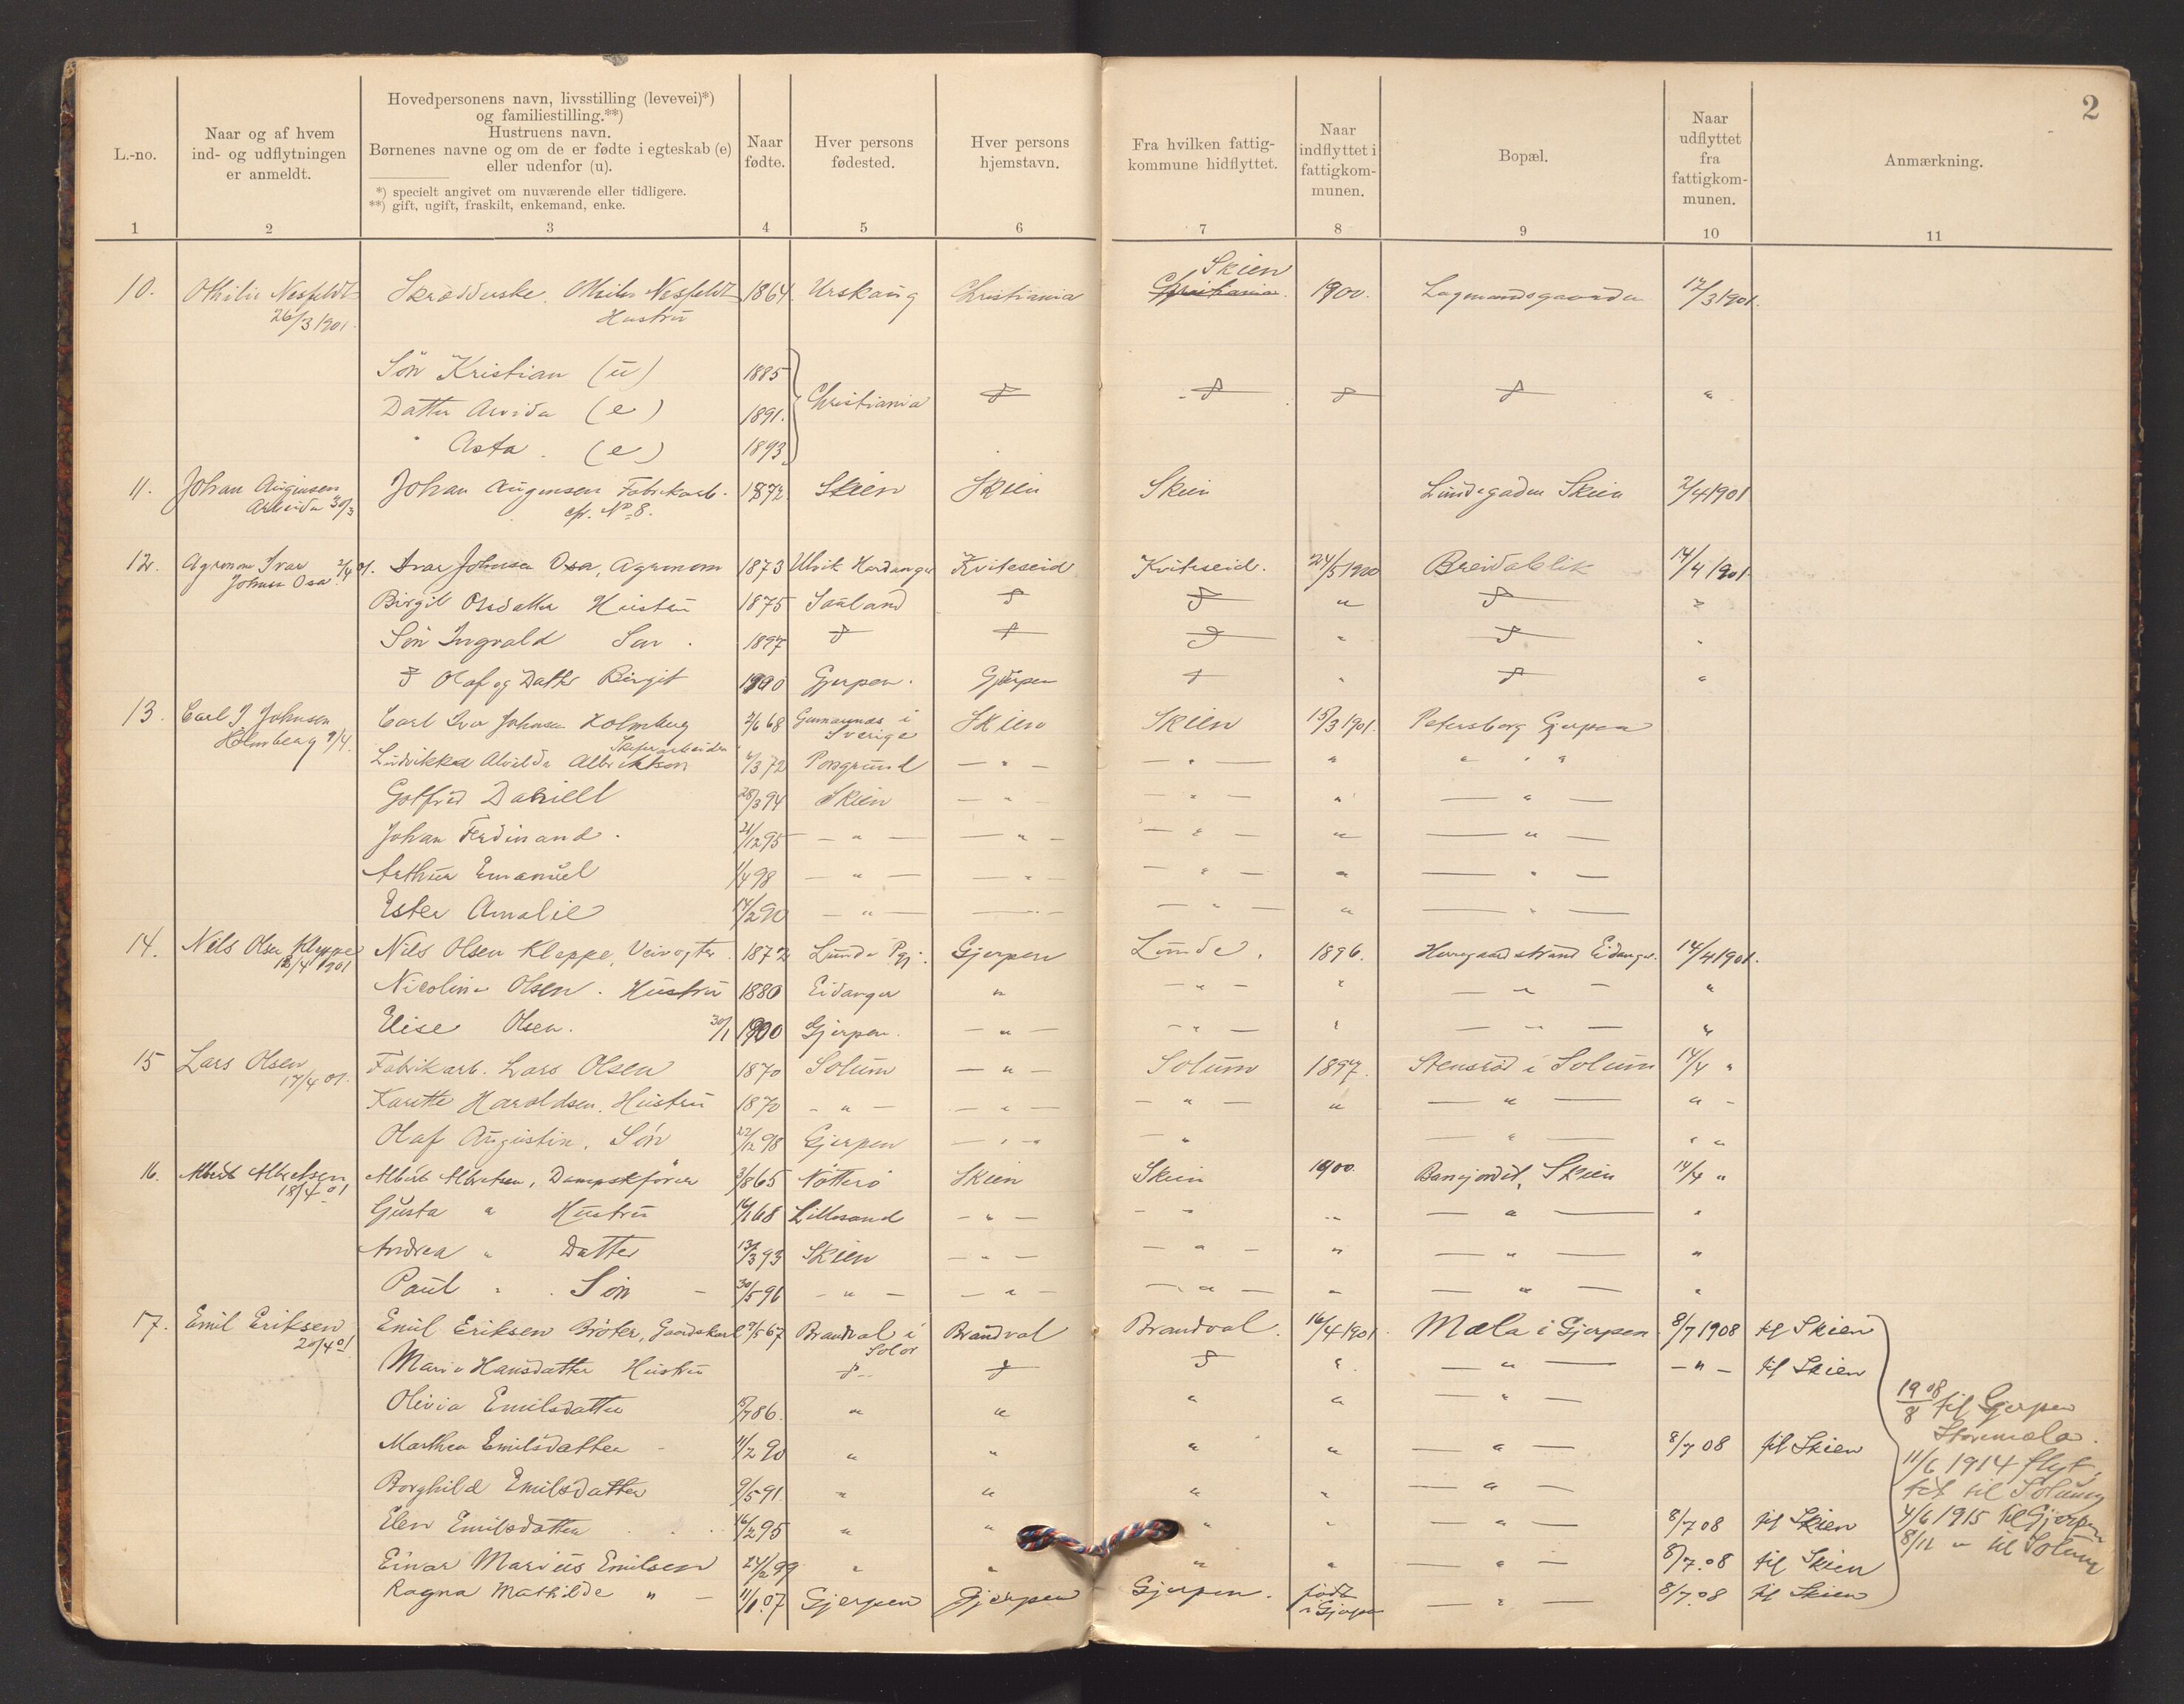 2
L.-no.
Naar og af hvem
ind- og udflytningen
er anmeldt.
Hovedpersonens navn, livsstilling (levevei)*)
og familiestilling.**)
Hustruens navn.
Børnenes navne og om de er fødte i egteskab (e)
eller udenfor (u).
*) specielt angivet om nuværende eller tidligere.
**) gift, ugift, fraskilt, enkemand, enke.
Naar
fødte.
Hver persons
fødested.
Hver persons
hjemstavn.
Fra hvilken fattig-
kommune hidflyttet.
Naar
indflyttet i
fattigkom-
munen.
Bopæl.
Naar
udflyttet
fra
fattigkom-
munen.
Anmærkning.
1 2 3 4 5 6 7 8 9 10 11
Skien
10. Othilie Nesfeldt Skrædderske Othilie Nesfeldt 1864 Urskaug Christiania Christiania 1900. Lagmandsgaarden 12/3 1901.
26/3 1901. Hustru
Søn Kristian (u) 1885
Datter Arvida (e) 1891. Christiania "
" Asta. (e) 1893.
11. Johan Augensen Johan Augensen Fabrikarb. 1872 Skien Skien Skien Lundegaden Skien 2/4 1901
Arbeider 30/3 cfr. No 8.
12. Agronom Ivar 2/4 01. Ivar Johnsen Osa, Agronom 1873 Ulvik Hardanger Kviteseid Kviteseid. 24/5 1900 Breidablik 14/4 1901.
Johnsen Osa
Birgit Olsdatter Hustru 1875 Sauland "
Søn Ingvald Søn. 1897 "
Olaf og Datter Birgit 1900 Gjerpen. Gjerpen "
13. Carl J Johnsen Carl Iver Johnsen Holmberg 2/6 68 i Skien Skien 15/3 1901. Petersborg Gjerpen
Holmberg 9/4. Sverige
Ludvikka Alvilda Albrikson 4/3 72 Porsgrund — " — — " — " " " "
Gotfred Daniell 28/3 94 Skien — " — — " — " — " —
Johan Ferdinand. 21/12 95 — " — — " — — " — " — " —
Arthur Emanuel 1/4 98 — " — — " — — " — " — " —
Ester Amalie 14/2 90 — " — — " — — " — " — " —
14. Nils Olsen Kleppe Nils Olsen Kleppe, Veivogter. 1872 Lunde Pgj. Gjerpen Lunde. 1896. Herregaardstrand Eidanger. 14/4 1901.
13/4 1901
Nicoline Olsen. Hustru 1880 Eidanger " — " — " — " — "
Elise Olsen. 30/1 1900 Gjerpen. — " — — " — " — " — "
15 Lars Olsen Fabrikarb. Lars Olsen 1870 Solum — " — Solum 1897. Stensrød i Solum 14/4 "
17/4 01.
Karitte Haroldsen. Hustru 1870 — " — — " — — " — " — " — " -
Olaf Augustin. Søn 22/12 98 Gjerpen — " — — " — " — " "
16. Albert Albretsen Albert Albretsen, Dampskfører 3/8 65 Nøtterø Skien Skien 1900. Bansjordet, Skien 14/4 "
18/4 01
Gusta " Hustru 14/1 68 Lillesand — " — — " " — " — "
Andrea " Datter 13/3 93 Skien — " — — " — " — " — "
Paul " . Søn — 30/5 96 — " — — " — — " — " — " — "
17. Emil Eriksen Emil Eriksen Brøter, Gaardskarl 9/5 67 Brandval i Brandval Brandval. 16/4 1901. Mæla i Gjerpen. 8/7 1908 til Skien
20/4 01 Solør
Marie Hansdatter Hustru " — " — — " — til Skien
Olivia Emilsdatter 15/7 86. " " " " — " —
Marthea Emilsdatter 11/2 90 " " " " — " — 8/7 08 til Skien
Borghild Emilsdatter 9/5 91. " " " " — " —
Elen Emilsdatter 16/2 95 " " " " — " — 8/7 08 til Skien
Einar Marius Emilsen 24/2 99 " " " " — " — 8/7.08 til Skien
Ragna Mathilde " — 11/1.07 Gjerpen Gjerpen Gjerpen. født — " — 8/7.08 til Skien
i Gjerpen
19/8 08 til Gjerpen
Stormæla.
11/6 1914 flyt-
tet til Solum
4/6 1915 til Gjerpen
8/11 " til Solum